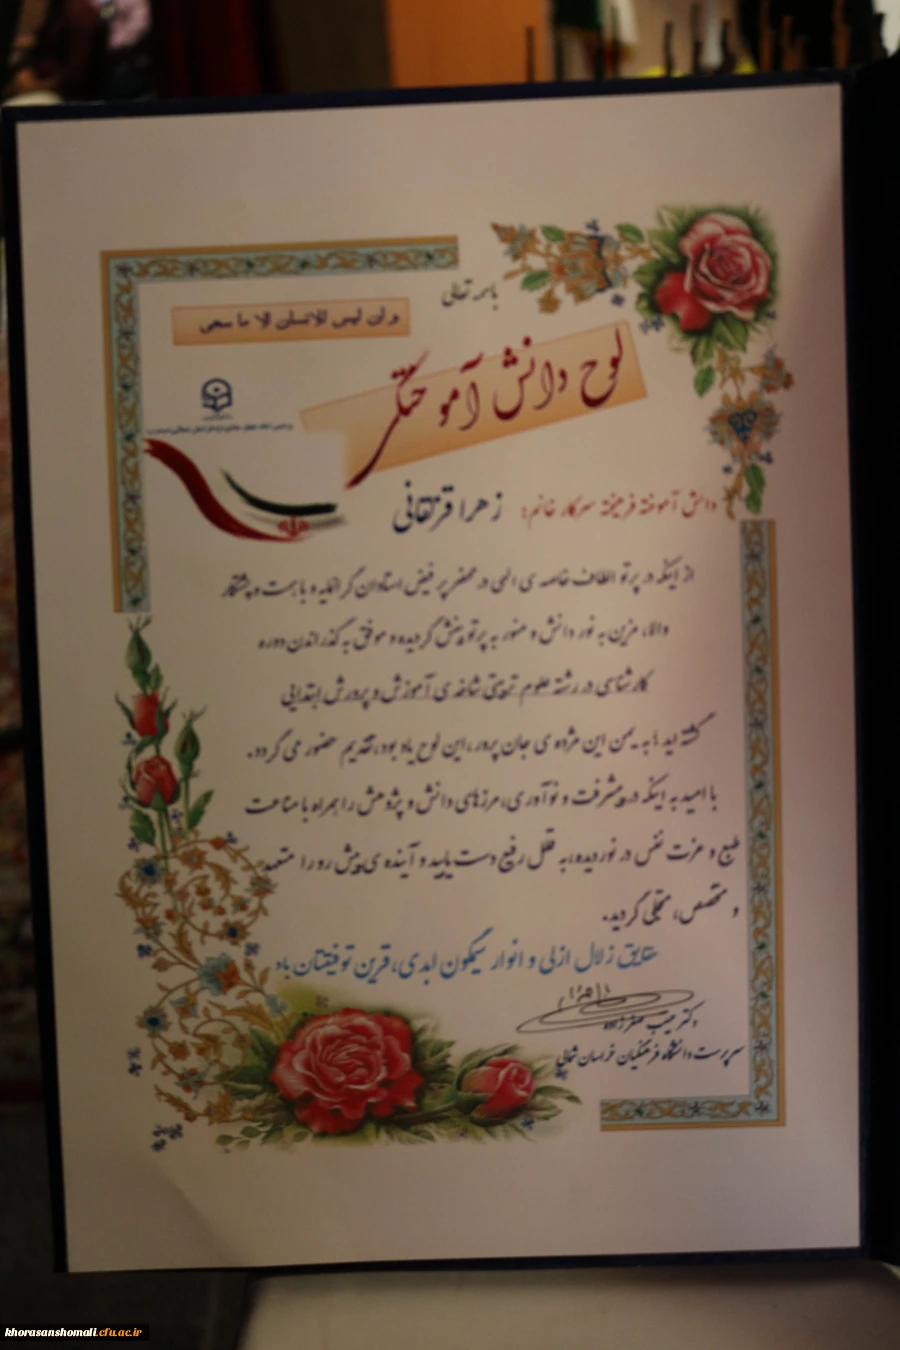 باسمه تعالی
و ان لیس للانسان الا ما سعی
لوح دانش آموختگی
دانش آموخته فرهیخته سرکار خانم: زهرا قرتقانی
از اینکه در پرتو الطاف خاصه ی الهی در محضر پر فیض استادان گرانمایه و با همت و پشتکار
والا، مزین به نور دانش و منور به پرتو بینش گردیده و موفق به گذراندن دوره
کارشناسی در رشته علوم تربیتی شاخه ی آموزش و پرورش ابتدایی
گشته اید، به یمن این مژده ی جان پرور، این لوح یادبود، تقدیم حضور می گردد.
با امید به اینکه در پیشرفت و نوآوری، مرزهای دانش و پژوهش را همراه با مناعت
طبع و عزت نفس در نوردیده، به قلل رفیع دست یابید و آینده ی پیش رو را متعهد
و متخصص، متجلی گردید.
حقایق زلال ازلی و انوار سیمگون ابدی، قرین توفیقتان باد
دکتر
سرپرست دانشگاه فرهنگیان خراسان شمالی
khorasanshomali.cfu.ac.ir